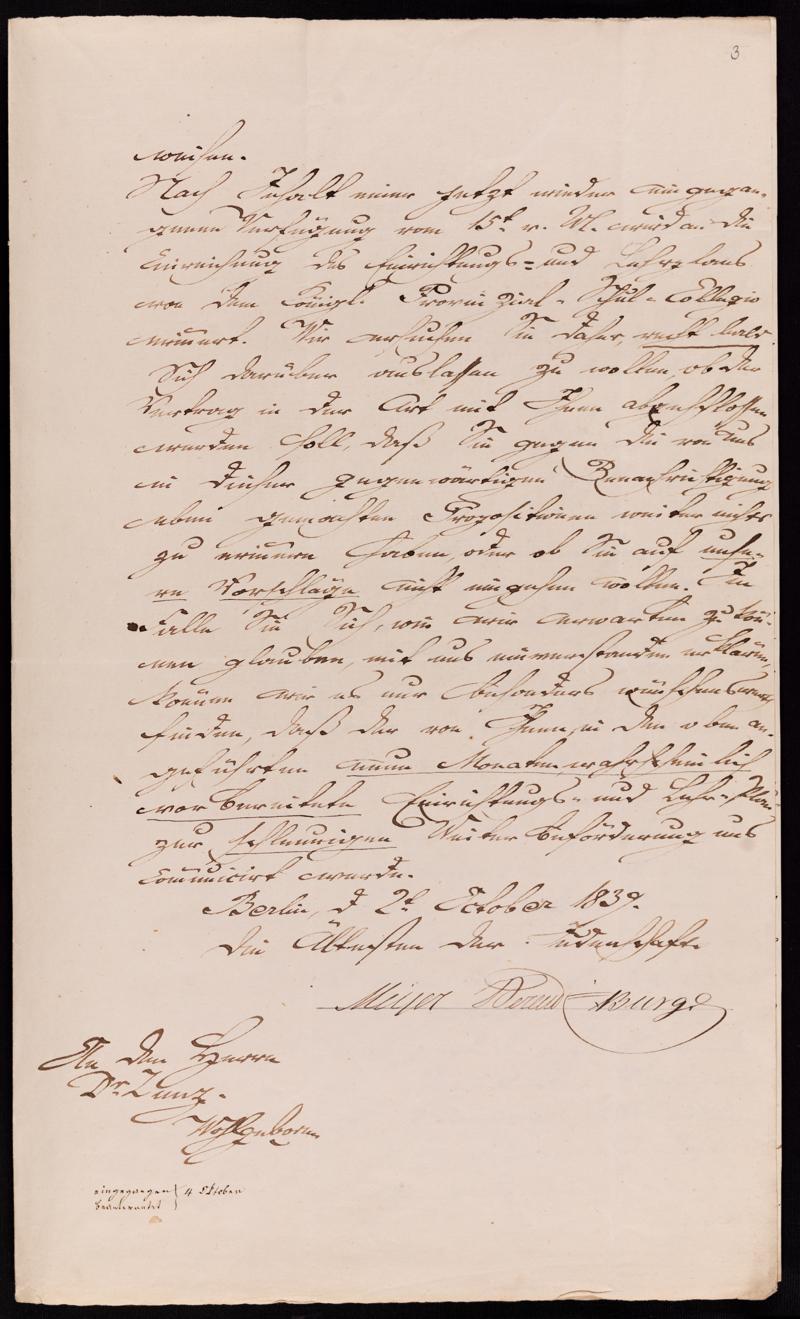 3
weisen.
Nach Inhalt einer jetzt wieder eingegan-
genen Verfügung vom 15t. v. M. wird an die
Einreichung des Einrichtungs- und Lehrplans
von dem Königl. Provinzial-Schul-Collegio
erinnert. Wir ersuchen Sie daher, recht bald
Sich darüber auslassen zu wollen, ob der
Vertrag in der Art mit Ihnen abgeschlossen
werden soll, daß Sie gegen die von uns
in dieser gegenwärtigen Benachrichtigung
eben gemachten Propositionen weiter nichts
zu erinnern haben, oder ob Sie auf unse-
re Vorschläge nicht eingehen wollen. Im
Falle Sie Sich, wie wir erwarten zu kön-
nen glauben, mit uns einverstanden erklären,
können wir es nur besonders wünschenswerth
finden, daß der von Ihnen, in den oben an-
geführten neun Monaten, wahrscheinlich
vorbereitete Einrichtungs- und Lehr-Plan
zur schleunigen Weiterbeförderung uns
communicirt werde.
Berlin, d 2t. October 1839.
Die Ältesten der Judenschaft
Meyer Berend Burg
An den Herrn
Dr. Zunz.
Wohlgeboren
eingegangen } 4 Oktober
beantwortet }